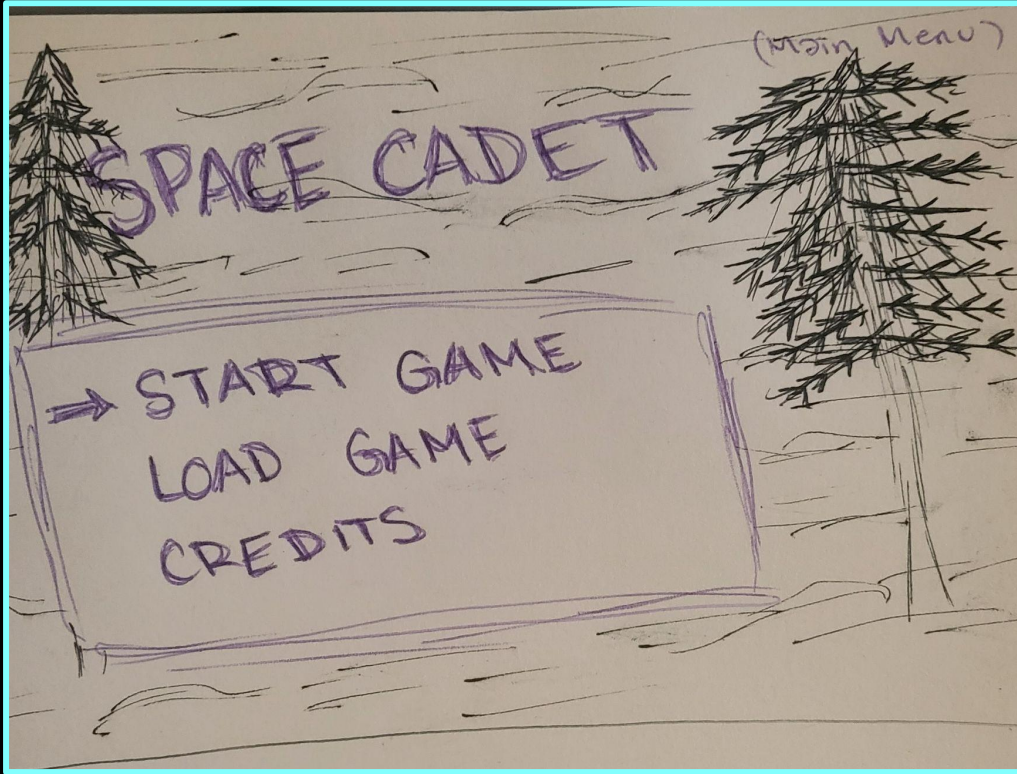 (Main Menu)
SPACE CADET
START GAME
LOAD GAME
CREDITS